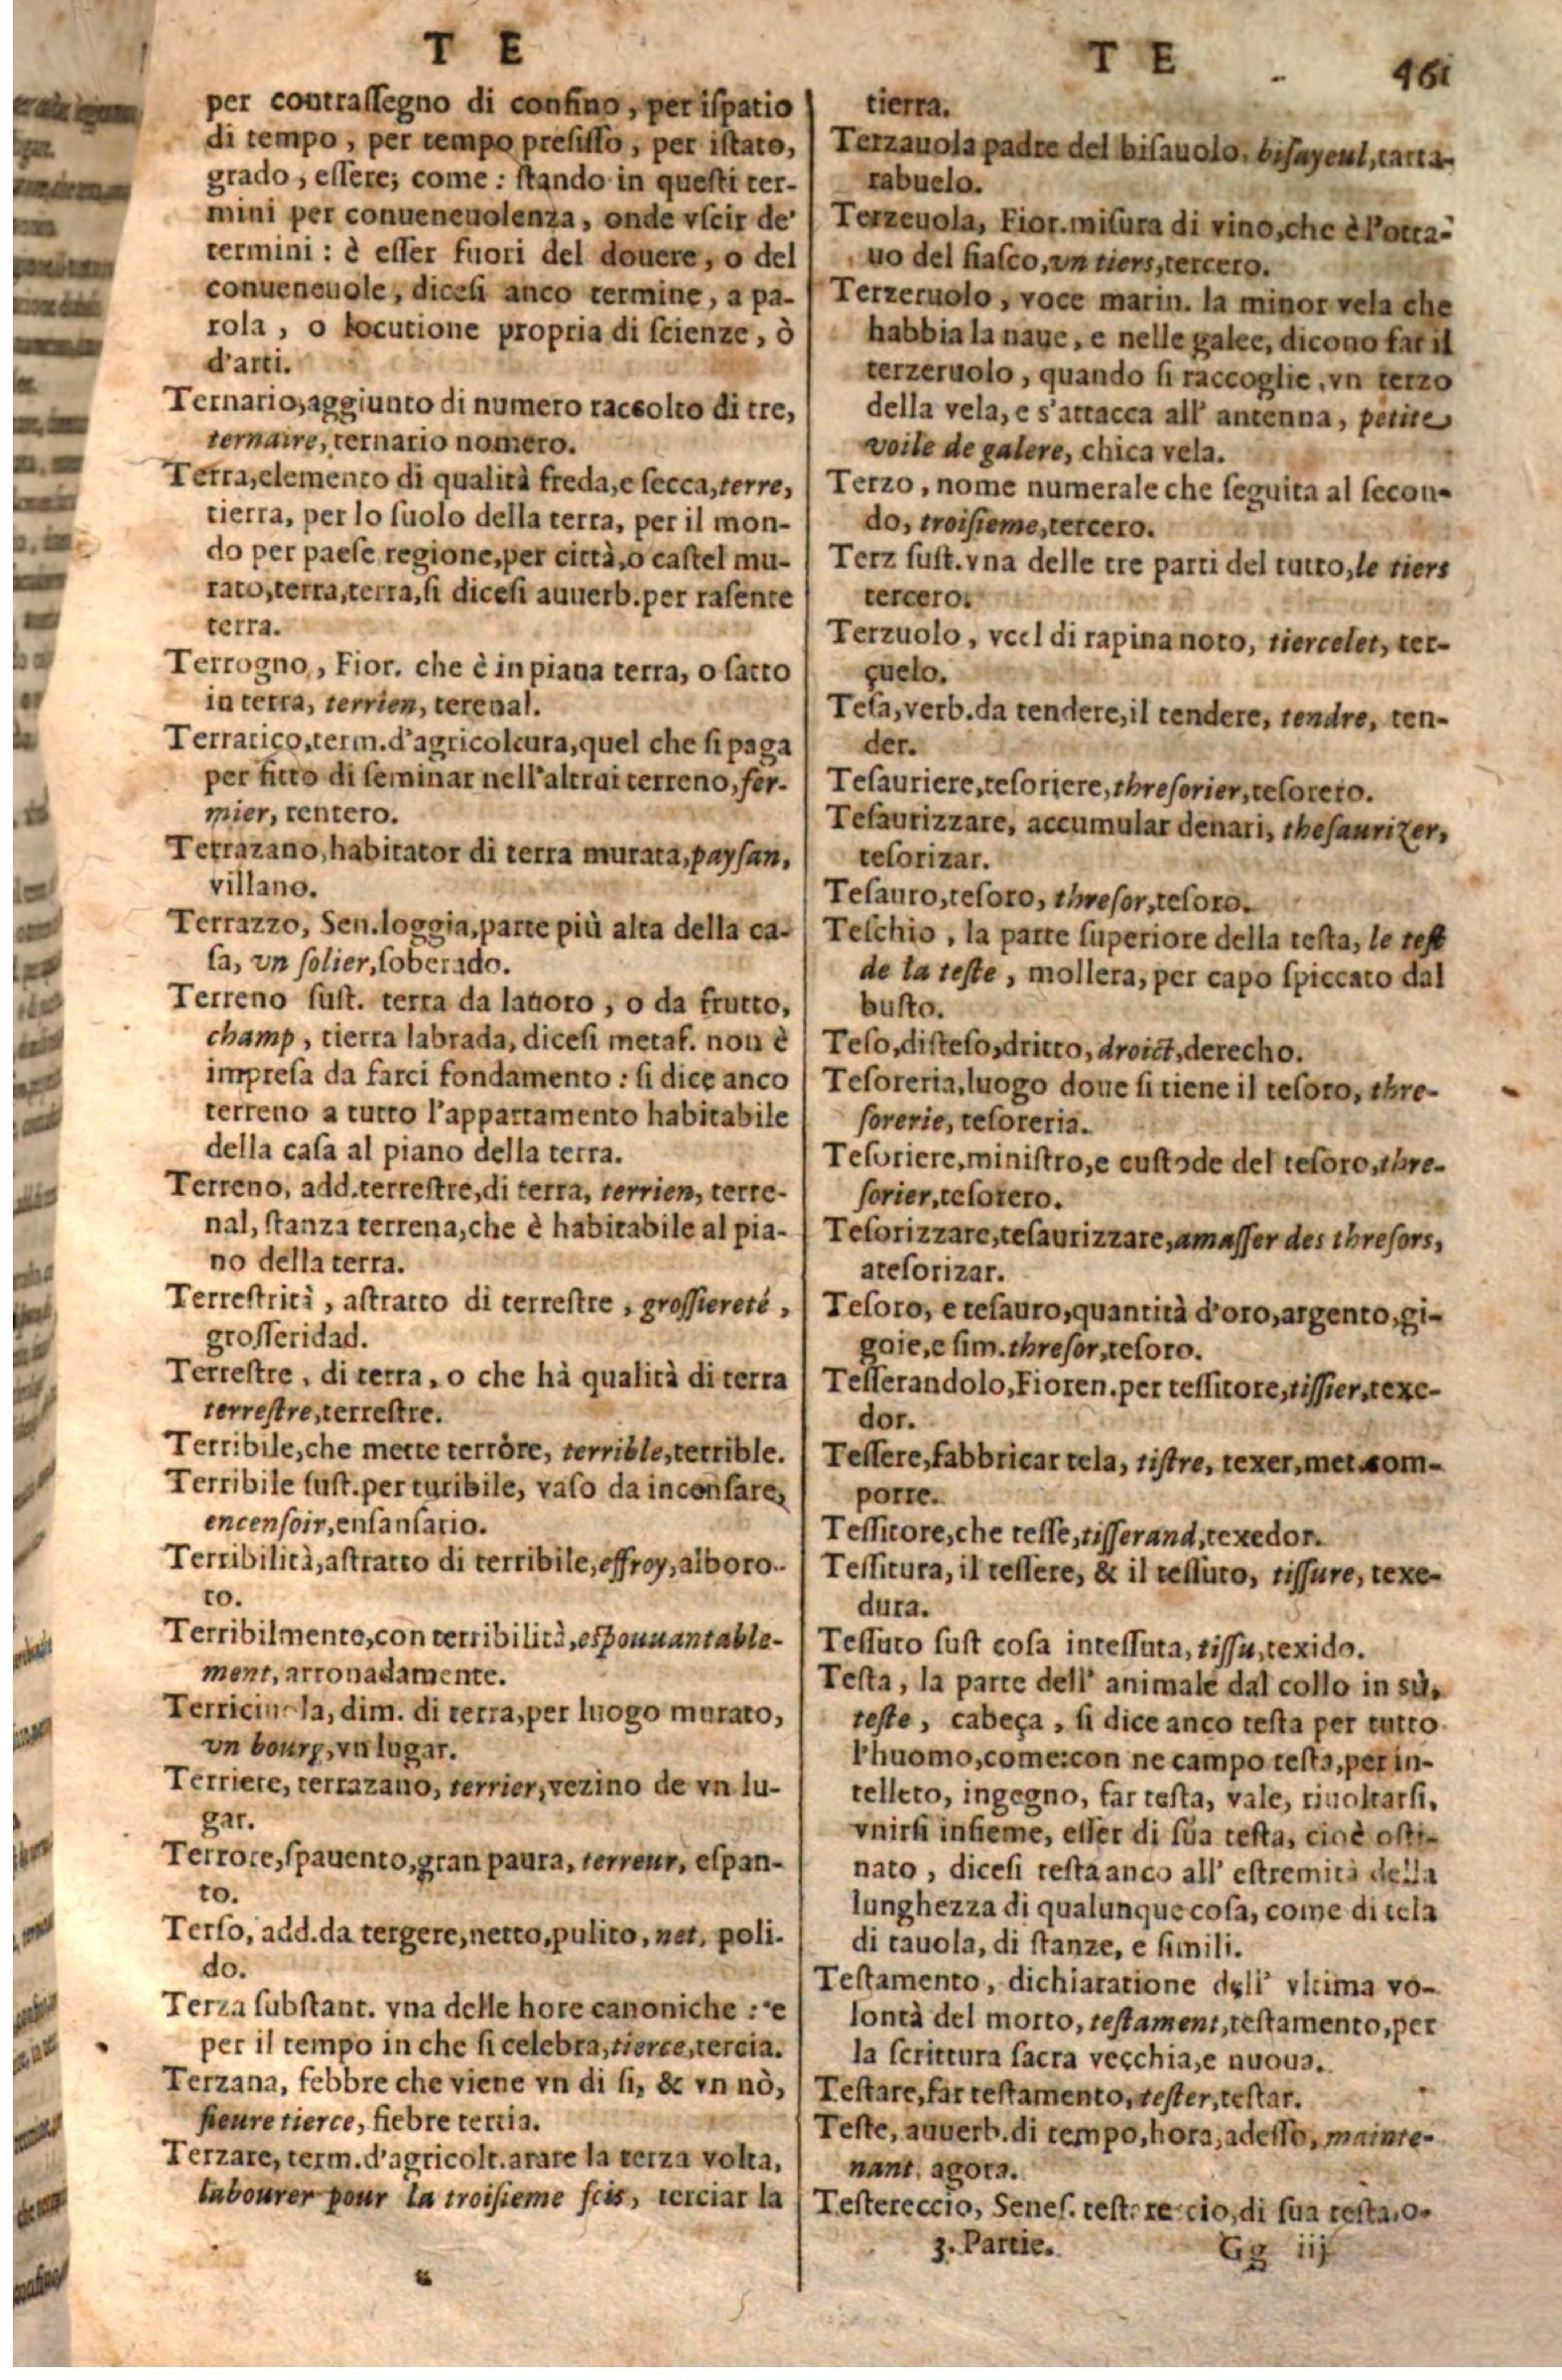 T E
per contraſſegno di confino, per iſpatio
di tempo, per tempo prefiſſo, per iſtato,
grado, eſſere; come: ſtando in queſti ter-
mini per conueneuolenza, onde vſcir de'
termini: è eſſer fuori del douere, o del
conueneuole, diceſi anco termine, a pa-
rola, o locutione propria di ſcienze, ò
d'arti.
Ternario, aggiunto di numero raccolto di tre,
ternaire, ternario nomero.
Terra, elemento di qualità freda, e ſecca, terre,
tierra, per lo ſuolo della terra, per il mon-
do per paeſe regione, per città, o caſtel mu-
rato, terra, terra, ſi diceſi auuerb. per raſente
terra.
Terrogno, Fior. che è in piana terra, o fatto
in terra, terrien, terenal.
Terratico, term. d'agricoltura, quel che ſi paga
per fitto di ſeminar nell'altrui terreno, fer-
mier, rentero.
Terrazano, habitator di terra murata, payſan,
villano.
Terrazzo, Sen. loggia, parte più alta della ca-
ſa, vn ſolier, ſoberado.
Terreno ſuſt. terra da lauoro, o da frutto,
champ, tierra labrada, diceſi metaf. non è
impreſa da farci fondamento: ſi dice anco
terreno a tutto l'appartamento habitabile
della caſa al piano della terra.
Terreno, add. terreſtre, di terra, terrien, terre-
nal, ſtanza terrena, che è habitabile al pia-
no della terra.
Terreſtrità, aſtratto di terreſtre, groſſiereté,
groſſeridad.
Terreſtre, di terra, o che hà qualità di terra
terreſtre, terreſtre.
Terribile, che mette terròre, terrible, terrible.
Terribile ſuſt. per turibile, vaſo da incenſare,
encenſoir, enſanſario.
Terribilità, aſtratto di terribile, effroy, alboro-
to.
Terribilmente, con terribilità, eſpouuantable-
ment, arronadamente.
dim. di terra, per luogo murato,
vn bourg, vn lugar.
Terriere, terrazano, terrier, vezino de vn lu-
gar.
Terrore, ſpauento, gran paura, terreur, eſpan-
to.
Terſo, add. da tergere, netto, pulito, net, poli-
do.
Terza ſubſtant. vna delle hore canoniche: e
per il tempo in che ſi celebra, tierce, tercia.
Terzana, febbre che viene vn di ſi, & vn nò,
fieure tierce, fiebre tertia.
Terzare, term. d'agricolt. arare la terza volta,
labourer pour la troiſieme fois, terciar la
T E 461
tierra.
Terzauola padre del biſauolo, biſayeul, tarta-
rabuelo.
Terzeuola, Fior. miſura di vino, che è l'otta-
uo del fiaſco, vn tiers, tercero.
Terzeruolo, voce marin. la minor vela che
habbia la naue, e nelle galee, dicono far il
terzeruolo, quando ſi raccoglie, vn terzo
della vela, e s'attacca all' antenna, petite
voile de galere, chica vela.
Terzo, nome numerale che ſeguita al ſecon-
do, troiſieme, tercero.
Terz ſuſt. vna delle tre parti del tutto, le tiers
tercero.
Terzuolo, vccl di rapina noto, tiercelet, ter-
çuelo.
Teſa, verb. da tendere, il tendere, tendre, ten-
der.
Teſauriere, teſoriere, threſorier, teſorero.
Teſaurizzare, accumular denari, theſaurizer,
teſorizar.
Teſauro, teſoro, threſor, teſoro.
Teſchio, la parte ſuperiore della teſta, le teſt
de la teſte, mollera, per capo ſpiccato dal
buſto.
Teſo, diſteſo, dritto, droict, derecho.
Teſoreria, luogo doue ſi tiene il teſoro, thre-
ſorerie, teſoreria.
Teſoriere, miniſtro, e cuſtode del teſoro, thre-
ſorier, teſorero.
Teſorizzare, teſaurizzare, amaſſer des threſors,
ateſorizar.
Teſoro, e teſauro, quantità d'oro, argento, gi-
goie, e ſim. threſor, teſoro.
Teſſerandolo, Fioren. per teſſitore, tiſſier, texe-
dor.
Teſſere, fabbricar tela, tiſtre, texer, met. com-
porre.
Teſſitore, che teſſe, tiſſerand, texedor.
Teſſitura, il teſſere, & il teſſuto, tiſſure, texe-
dura.
Teſſuto ſuſt coſa inteſſuta, tiſſu, texido.
Teſta, la parte dell' animale dal collo in sù,
teſte, cabeça, ſi dice anco teſta per tutto
l'huomo, come: con ne campo teſta, per in-
telleto, ingegno, far teſta, vale, riuoltarſi,
vnirſi inſieme, eſſer di ſua teſta, cioè oſti-
nato, diceſi teſta anco all' eſtremità della
lunghezza di qualunque coſa, come di tela
di tauola, di ſtanze, e ſimili.
Teſtamento, dichiaratione dell' vltima vo-
lontà del morto, teſtament, teſtamento, per
la ſcrittura ſacra vecchia, e nuoua.
Teſtare, far teſtamento, teſter, teſtar.
Teſte, auuerb. di tempo, hora, adeſſo, mainte-
nant, agora.
Teſtereccio, Seneſ. di ſua teſta, o-
3. Partie. Gg iij